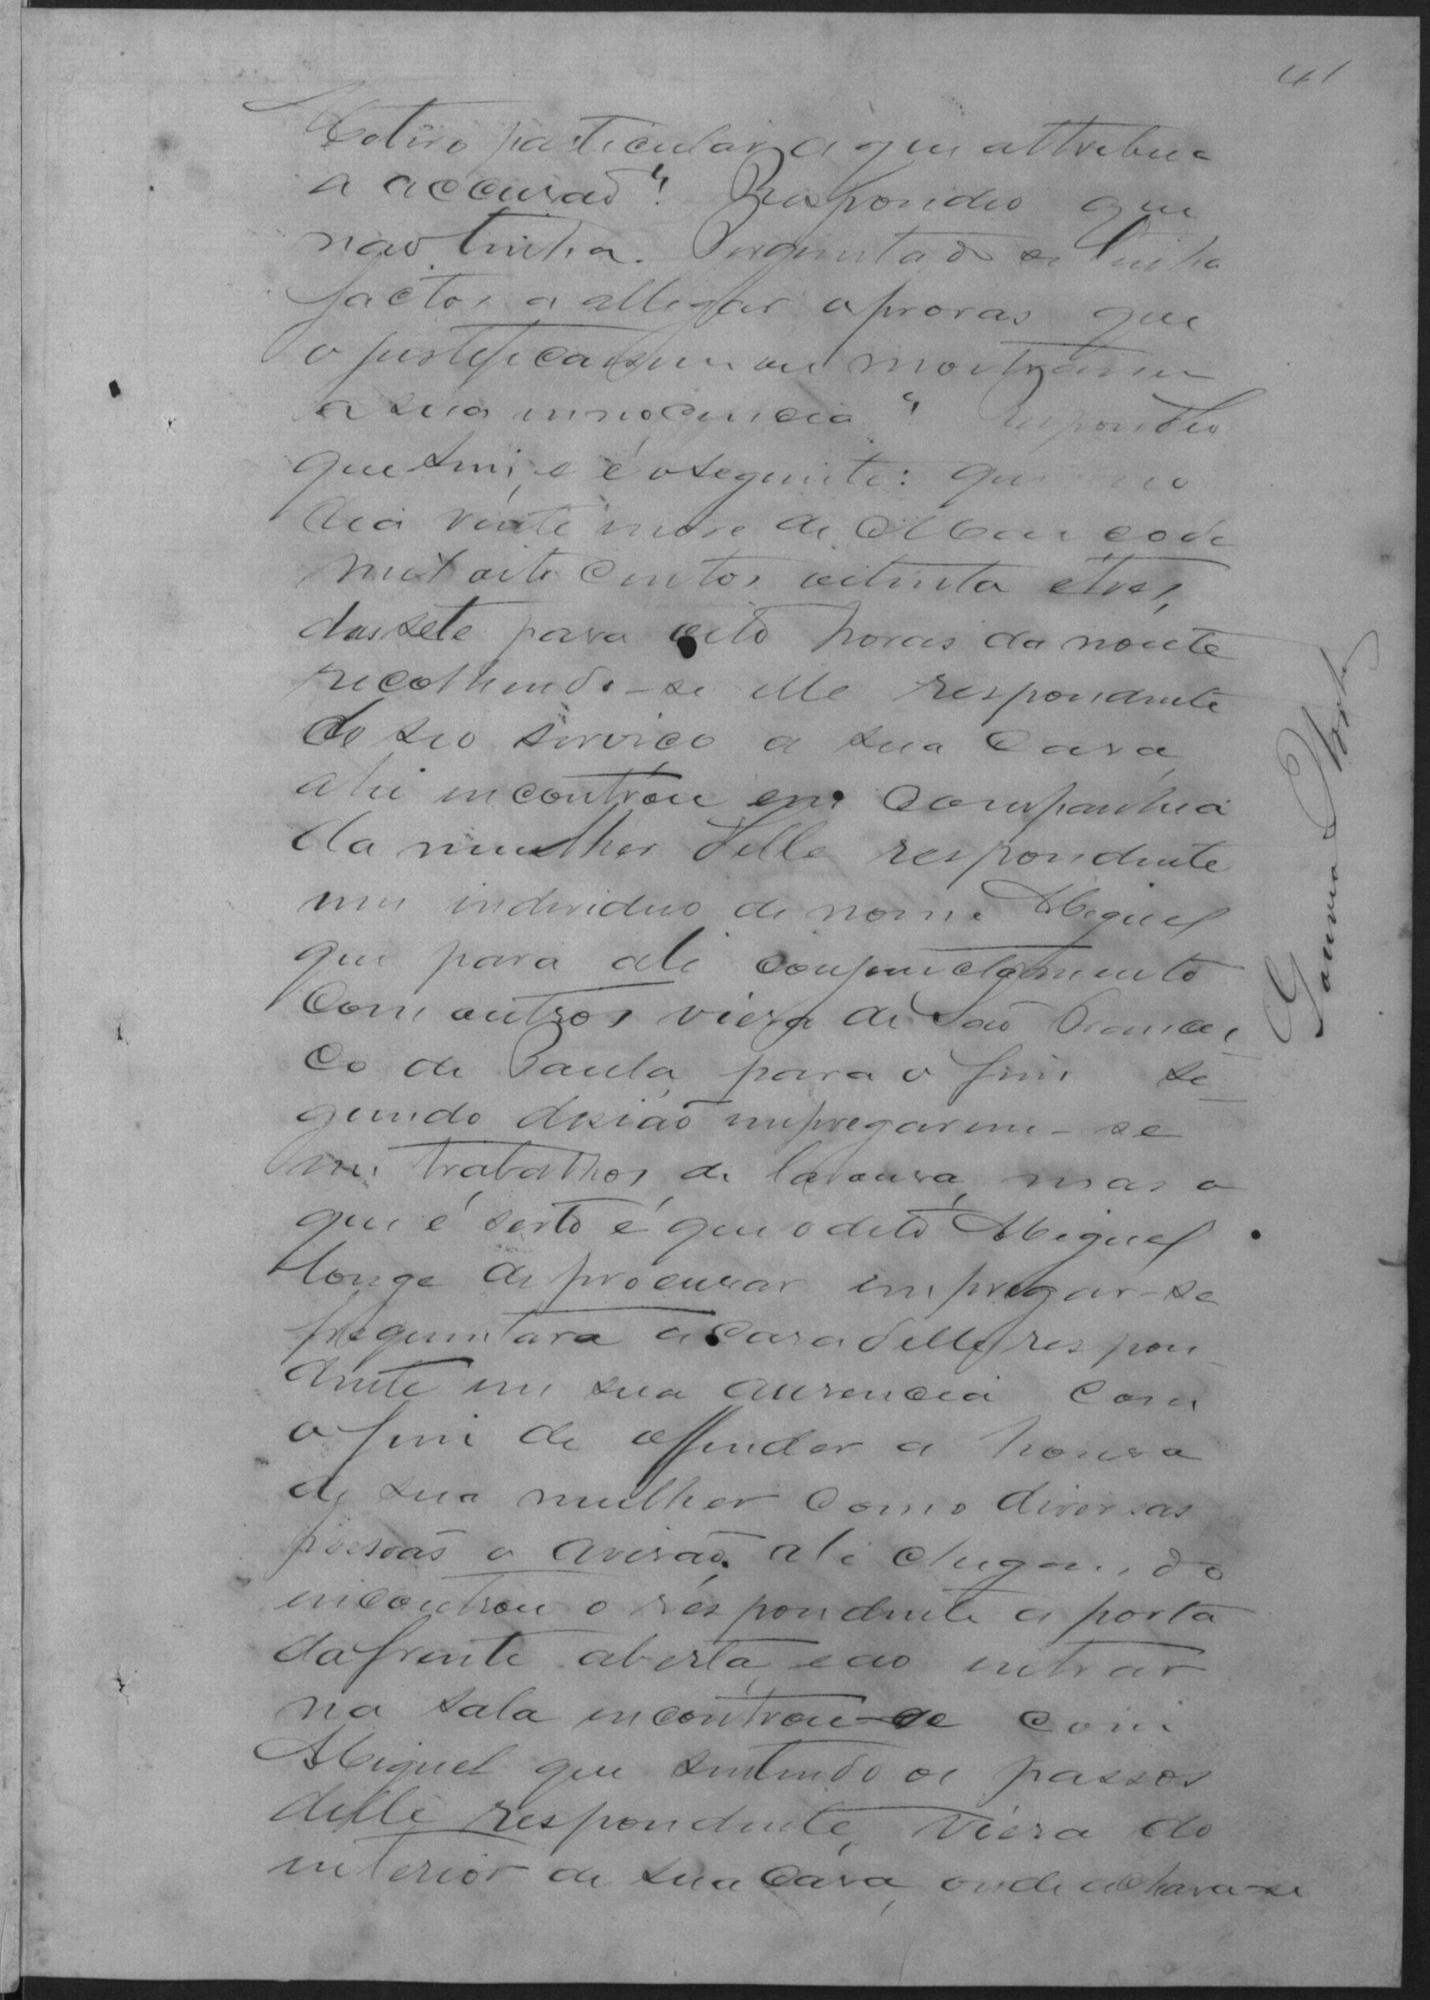 41
Motivo particular a que attribue
a accusaõ? Respondeo que
naõ tinha. Perguntado se tinha
factos a allegar e provas que
o justificassem ou mostrassem
a sua innocencia? Respondeo
que sim, e é o seguinte: que no
dia vinte nove de Março de
mil oito centos oitenta e tres,
das sete para oito horas da noute
recolhendo-se elle respondente
do seo serviço a sua casa,
ahi encontrou em companhia
da mulher delle respondente
um individuo de nome Miguel
que para ali conjunctamente
com outros viera de Saõ Francis
co de Paula, para o fim se
gundo disiaõ empregarem-se
em trabalhos de lavoura, mas o
que é serto é que o dito Miguel
longe de procurar empregar-se
frequentava a casa delle respon
dente em sua ausencia com
o fim de offender a honra
de sua mulher como diversas
pessoas o avisaõ. Ali chegando
encontrou o respondente a porta
da frente aberta, e ao entrar
na sala encontrou-se com
Miguel que sentindo os passos
delle respondente, viera do
interior de sua casa, onde achava-se